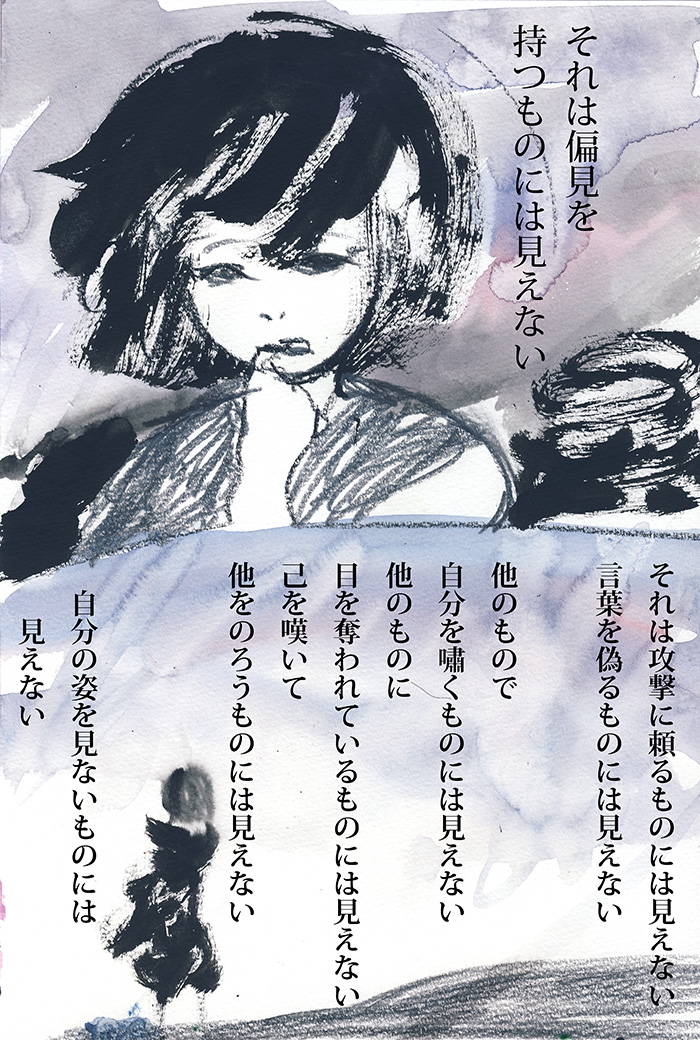 それは偏見を
持つものには見えない
それは攻撃に頼るものには見えない
言葉を偽るものには見えない
他のもので
自分を嘯くものには見えない
他のものに
目を奪われているものには見えない
己を嘆いて
他をのろうものには見えない
自分の姿を見ないものには
見えない